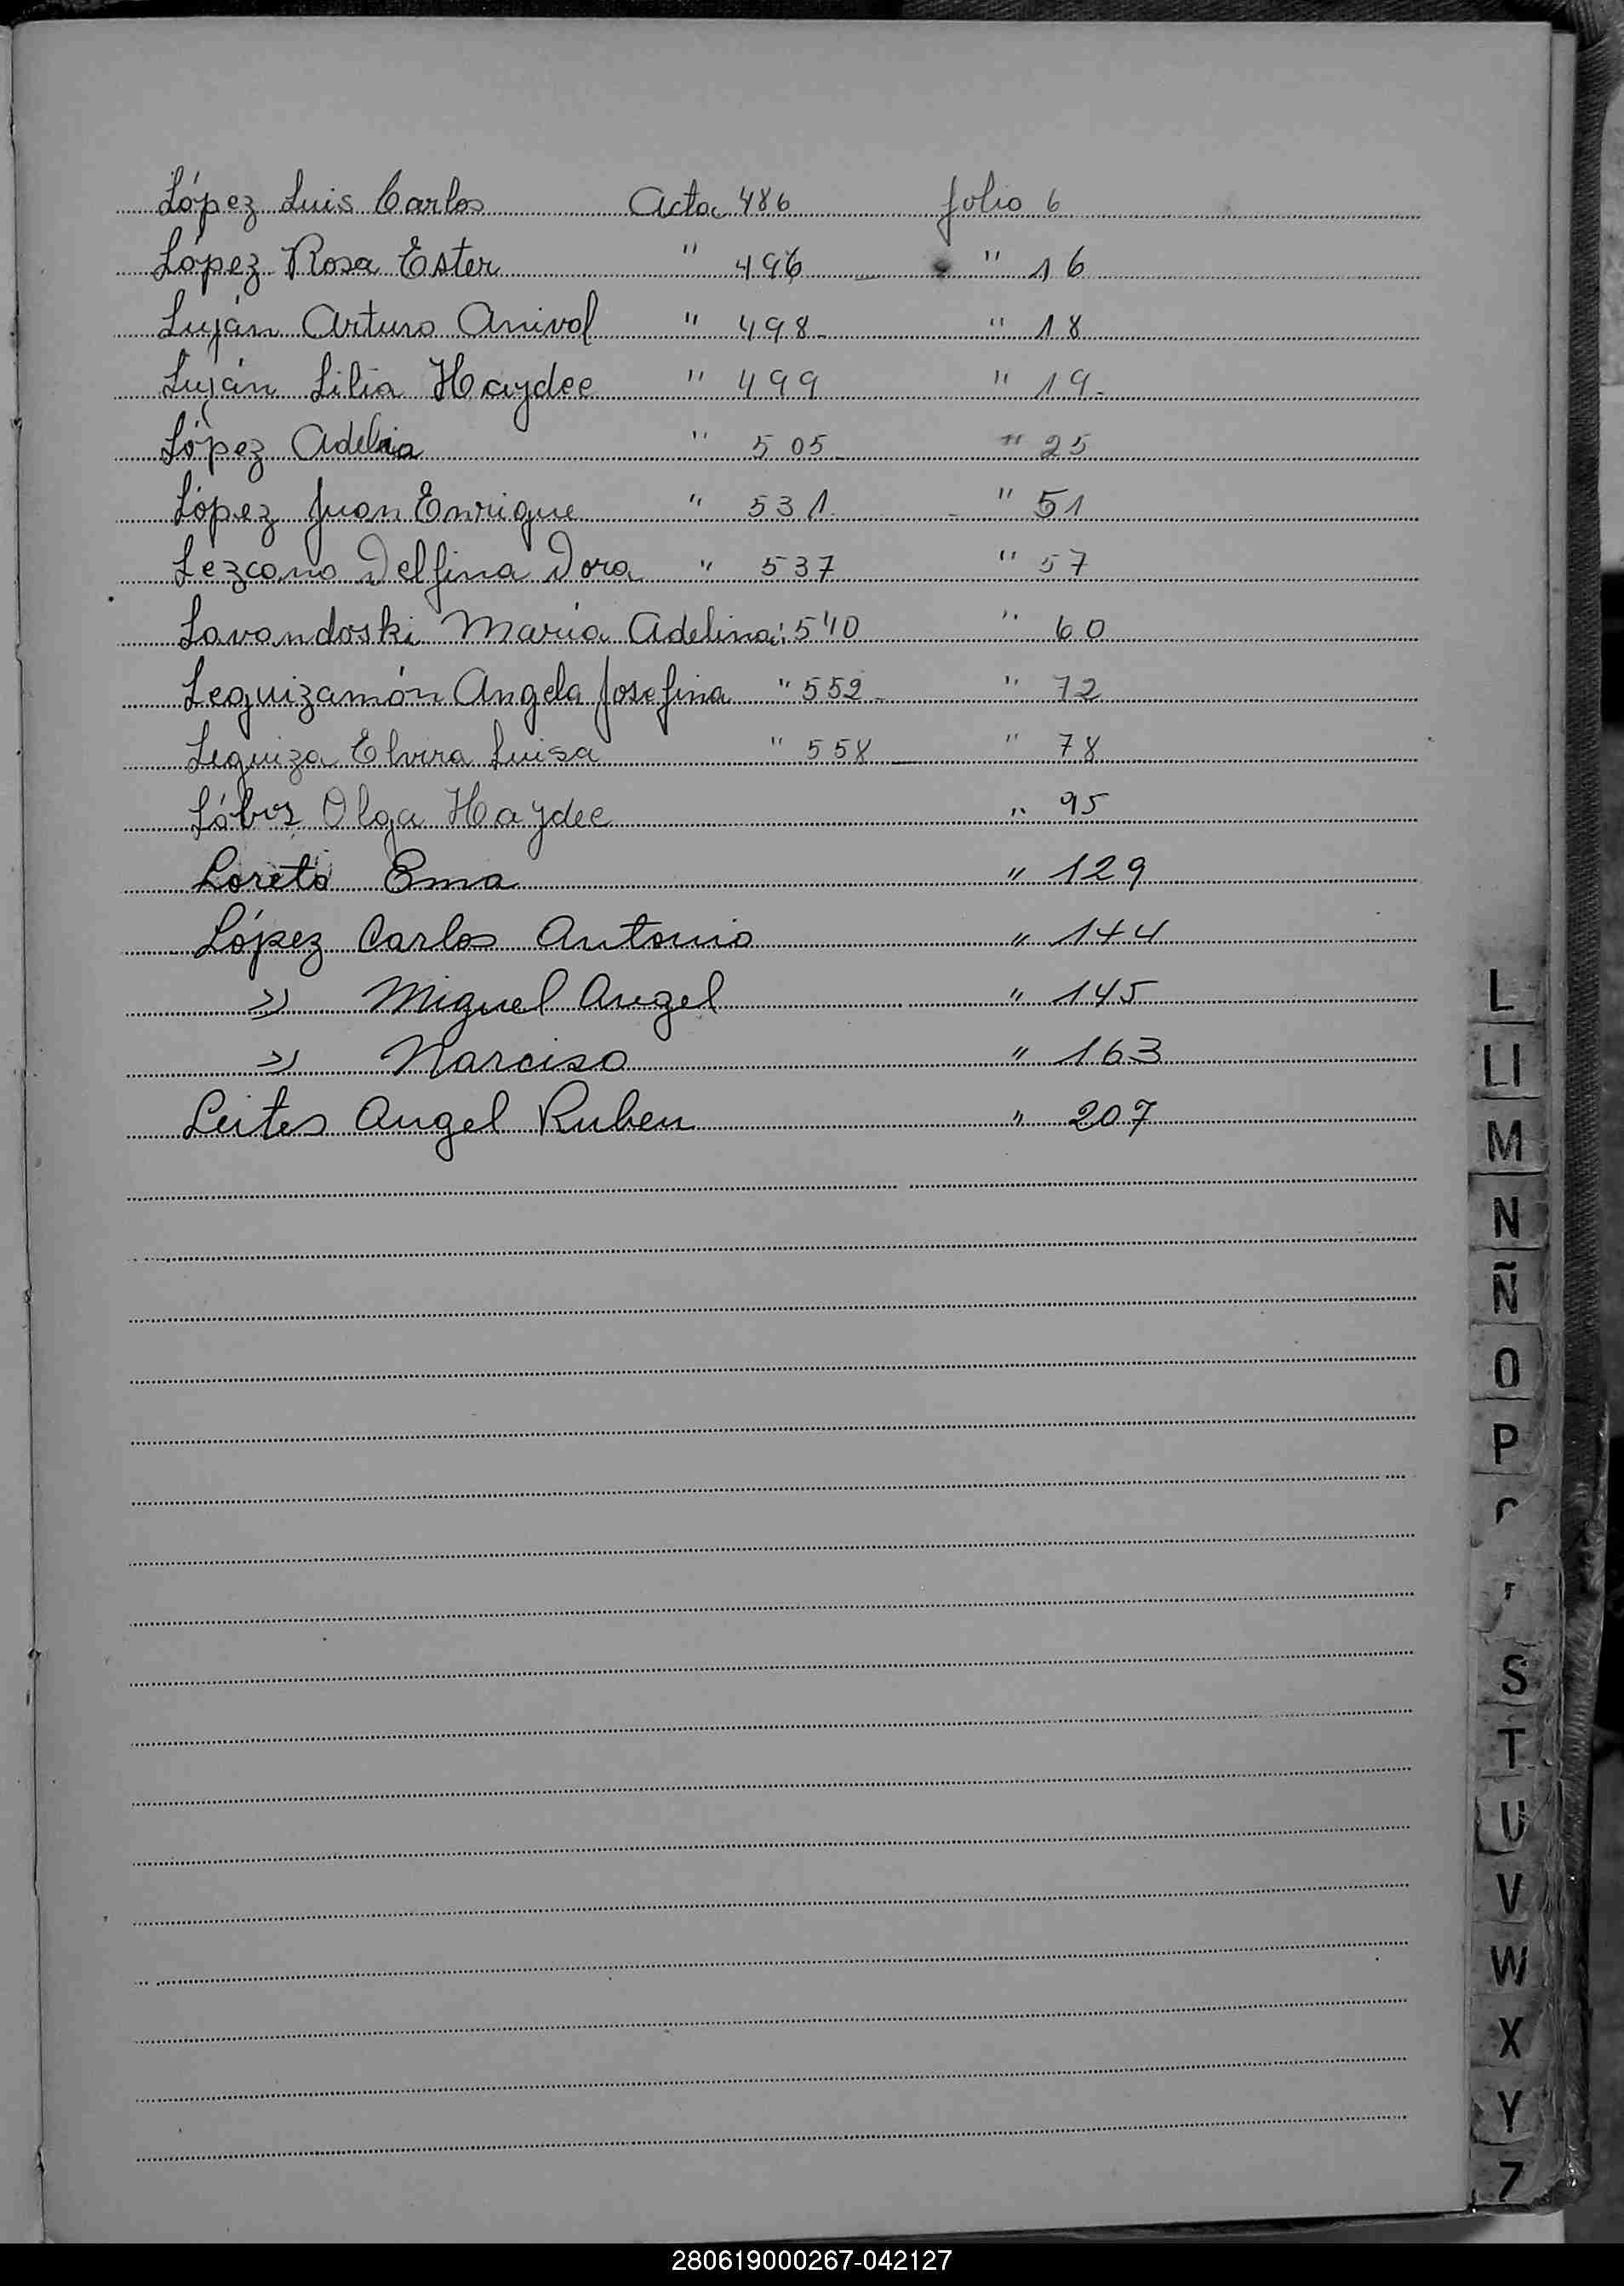 López Luis Carlos Acta 486 folio 6
López Rosa Ester " 496 " 16
Luján Arturo Anival " 498 " 18
Luján Lilia Haydee " 499 " 19
López Adelia " 505 " 25
López Juan Enrique " 531 " 51
Lezcano Delfina Dora " 537 " 57
Lavandoski Maria Adelina " 540 " 60
Leguizamón Angela Josefina " 552 " 72
Leguiza Elvira Luisa " 558 " 78
Olga Haydee " 95
Loreto Ema " 129
López Carlos Antonio " 144
" Miguel Angel " 145
" Narciso " 163
Leites Angel Ruben " 207
L
Ll
M
N
Ñ
O
P
S
T
U
V
W
X
Y
Z
280619000267-042127